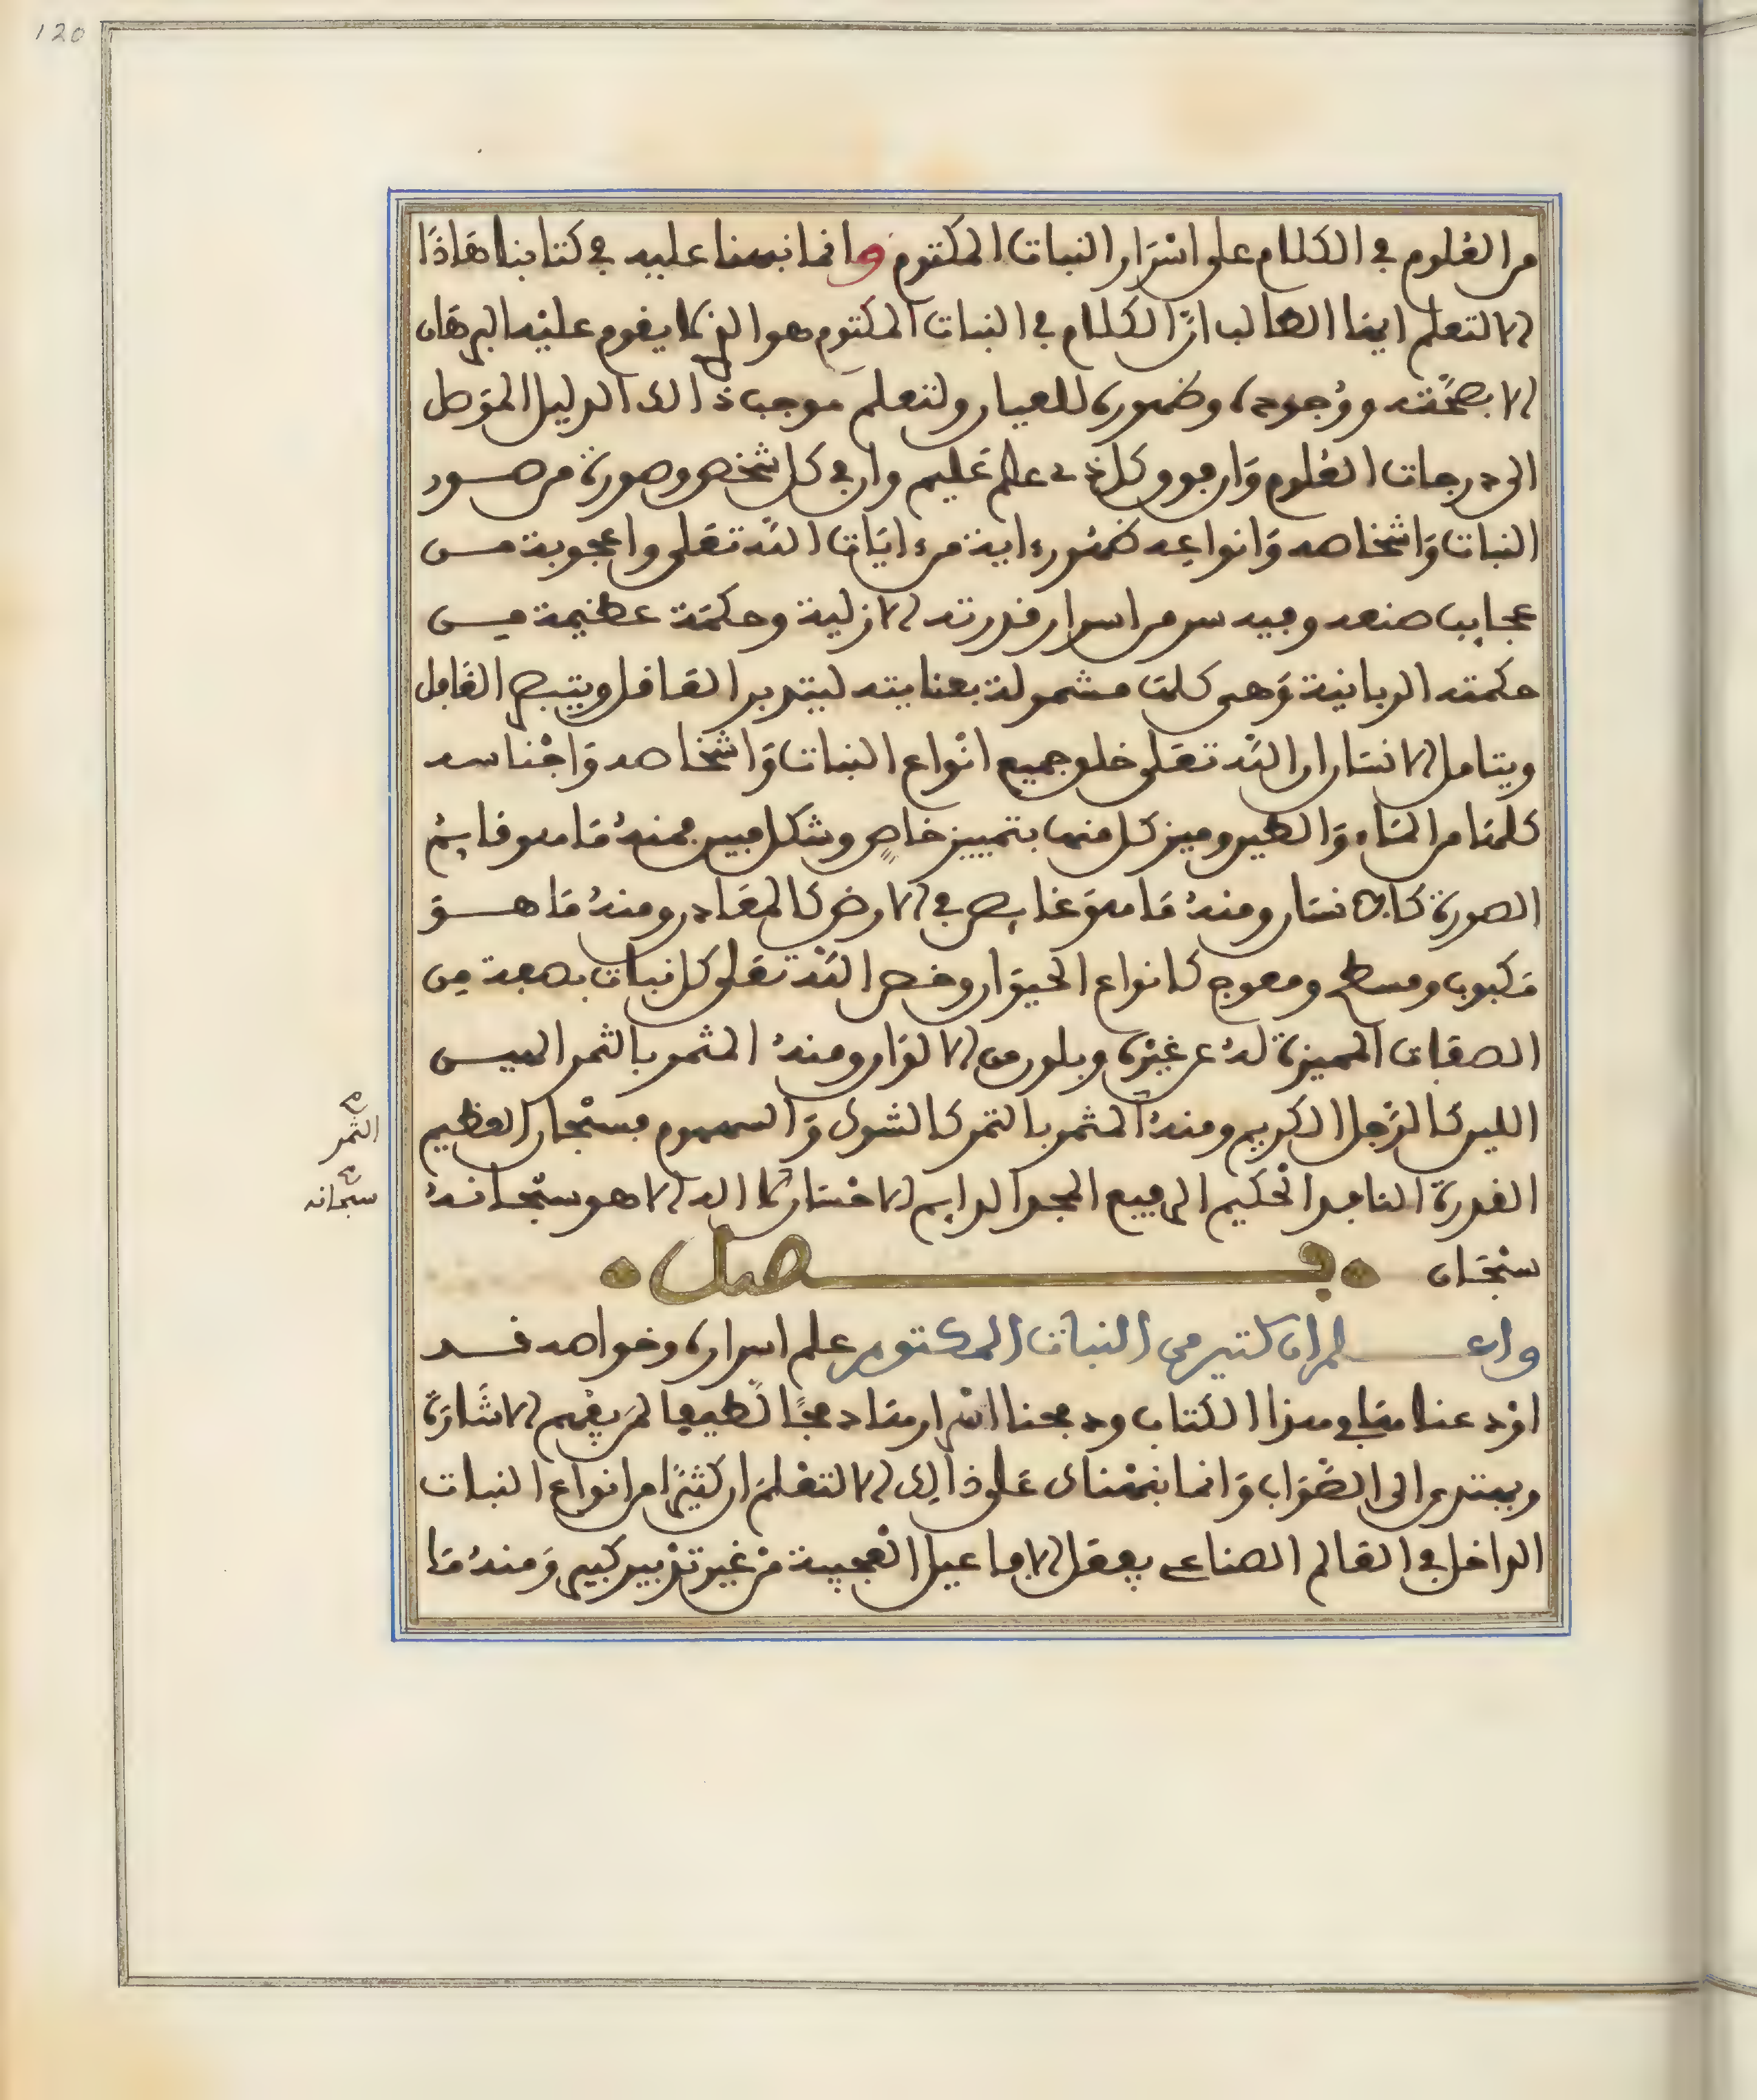 120
من العلوم في الكلام على اسرار النبات المكتوم وانما نبهنا عليه في كتابنا هاذا
الا لتعلم ايها الطالب ان الكلام في النبات المكتوم هو الذي لا يقوم عليه البرهان
الا بصحته ووجوده وظهوره للعيان ولتعلم موجب ذالك الدليل الموصل
الى درجات العلوم وان فوق كل ذي علم عليم وان في كل شخص وصورة من صور
النبات واشخاصه وانواعه ظهور ءاية من ءايات الله تعلى واعجوبة من
عجايب صنعه وفيه سر من اسرار قدرته الازلية وحكمة عظيمة من
حكمته الربانية وهي كلها مشمولة بعنايته ليتدبر العاقل ويتبصر الغافل
ويتامل الانسان ان الله تعلى خلق جميع انواع النبات واشخاصه واجناسه
كلها من الماء والطين وميز كل منها بتمييز خاص وشكل مبين فمنه ما هو قايم
الصورة كالانسان ومنه ما هو غايص في الارض كالمعادن ومنه ما هو
مكبوب ومسطح ومعوج كانواع الحيوان وخص الله تعلى كل نبات بصفة من
الصفات المميزة له عن غيره وبلون من الالوان ومنه المثمر بالثمر النفيس
اللين كالرجل الكريم ومنه المثمر بالتمر كالشوك والسموم فسبحان العظيم
القدرة النافد الحكيم الرفيع المجد الدايم الاحسان لا اله الا هو سبحانه
سبحان فصل
واعلم ان كثير من النبات المكتوم علم اسراره وخواصه قد
اودعناها في هذا الكتاب ودمجنا اسرارها دمجا لطيفا لمن يفهم الاشارة
ويهتدي الى الصواب وانما نبهناك على ذالك الا لتعلم ان كثيرا من انواع النبات
الداخل في العالم الصناعي يفعل الافاعيل العجيبة من غير تدبير كبير ومنه ما
الثمر
سبحانه